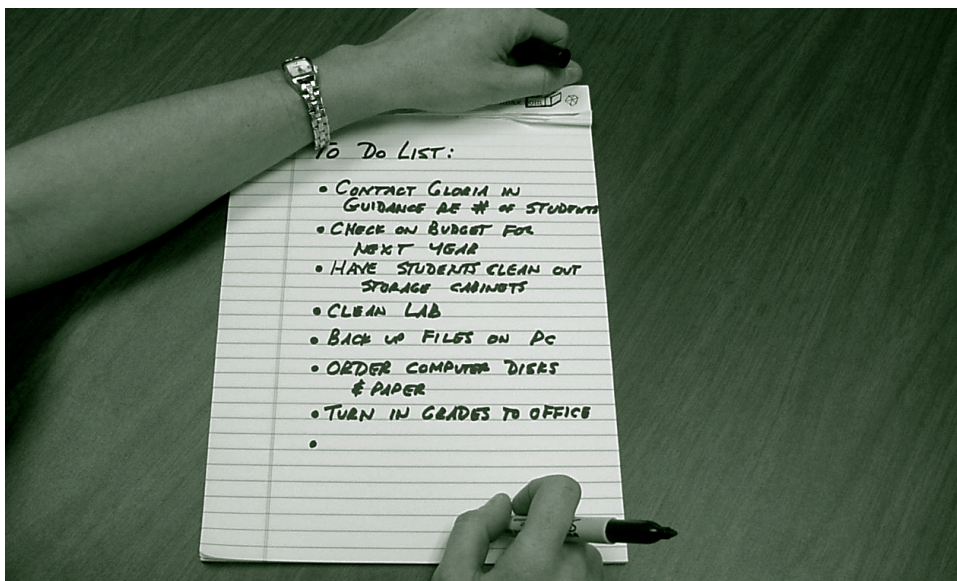 To Do List:
• Contact Gloria in
Guidance re # of students
• Check on Budget for
next year
• Have students clean out
storage cabinets
• Clean Lab
• Back up Files on PC
• Order computer disks
& paper
• Turn in grades to office
•